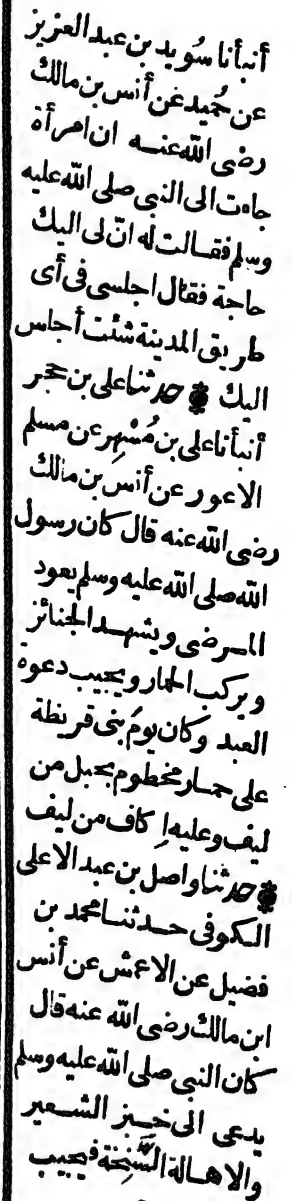 أنبأنا سُويد بن عبد العزيز
عن حُميد عن أنس بن مالك
رضى الله عنه ان امرأة
جاءت الى النبي صلى الله عليه
وسلم فقالت له انّ لى اليك
حاجة فقال اجلسى فى أى
طريق المدينة شئت أجلس
اليك ۞ حدثنا على بن حجر
أنبأنا على بن مُسْهِر عن مسلم
الاعور عن أنس بن مالك
رضى الله عنه قال كان رسول
الله صلى الله عليه وسلم يعود
المرضى ويشهد الجنائز
ويركب الحمار ويجيب دعوة
العبد وكان يومَ بنى قريظة
على حمار مخطوم بحبل من
ليف وعليه اِكاف من ليف
۞ حدثنا واصل بن عبد الاعلى
الكوفى حدثنا محمد بن
فضيل عن الاعمش عن أنس
ابن مالك رضى الله عنه قال
كان النبى صلى الله عليه وسلم
يدعى الى خبز الشعير
والاهالة السَّنِخة فيجيب